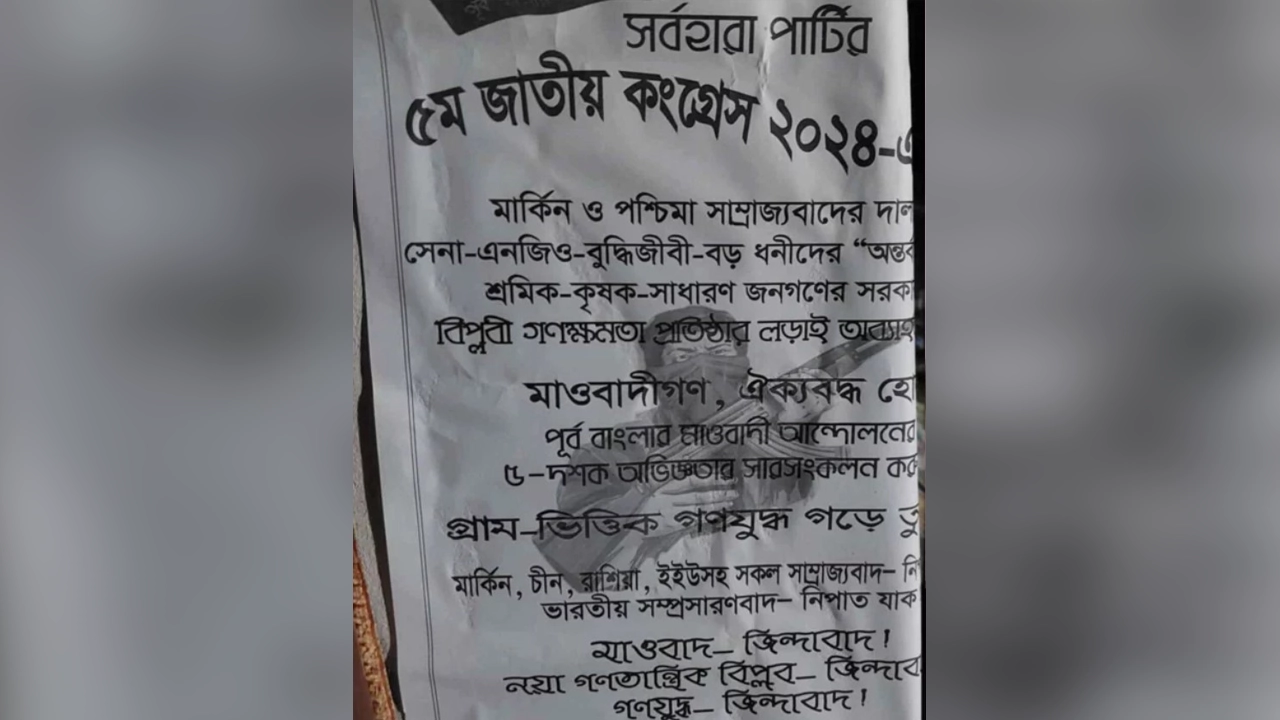 সর্বহারা পার্টির
৫ম জাতীয় কংগ্রেস ২০২৪-এ
মার্কিন ও পশ্চিমা সাম্রাজ্যবাদের
সেনা-এনজিও-বুদ্ধিজীবী-বড় ধনীদের
শ্রমিক-কৃষক-সাধারণ জনগণের
বিপ্লবী গণক্ষমতা প্রতিষ্ঠার লড়াই
মাওবাদীগণ, ঐক্যবদ্ধ
পূর্ব বাংলার মাওবাদী আন্দোলনের
৫-দশক অভিজ্ঞতার সারসংকলন
গ্রাম-ভিত্তিক গণযুদ্ধ গড়ে
মার্কিন, চীন, রাশিয়া, ইইউসহ সকল সাম্রাজ্যবাদ–
ভারতীয় সম্প্রসারণবাদ– নিপাত যাক
মাওবাদ– জিন্দাবাদ!
নয়া গণতান্ত্রিক বিপ্লব–
গণযুদ্ধ– জিন্দাবাদ!